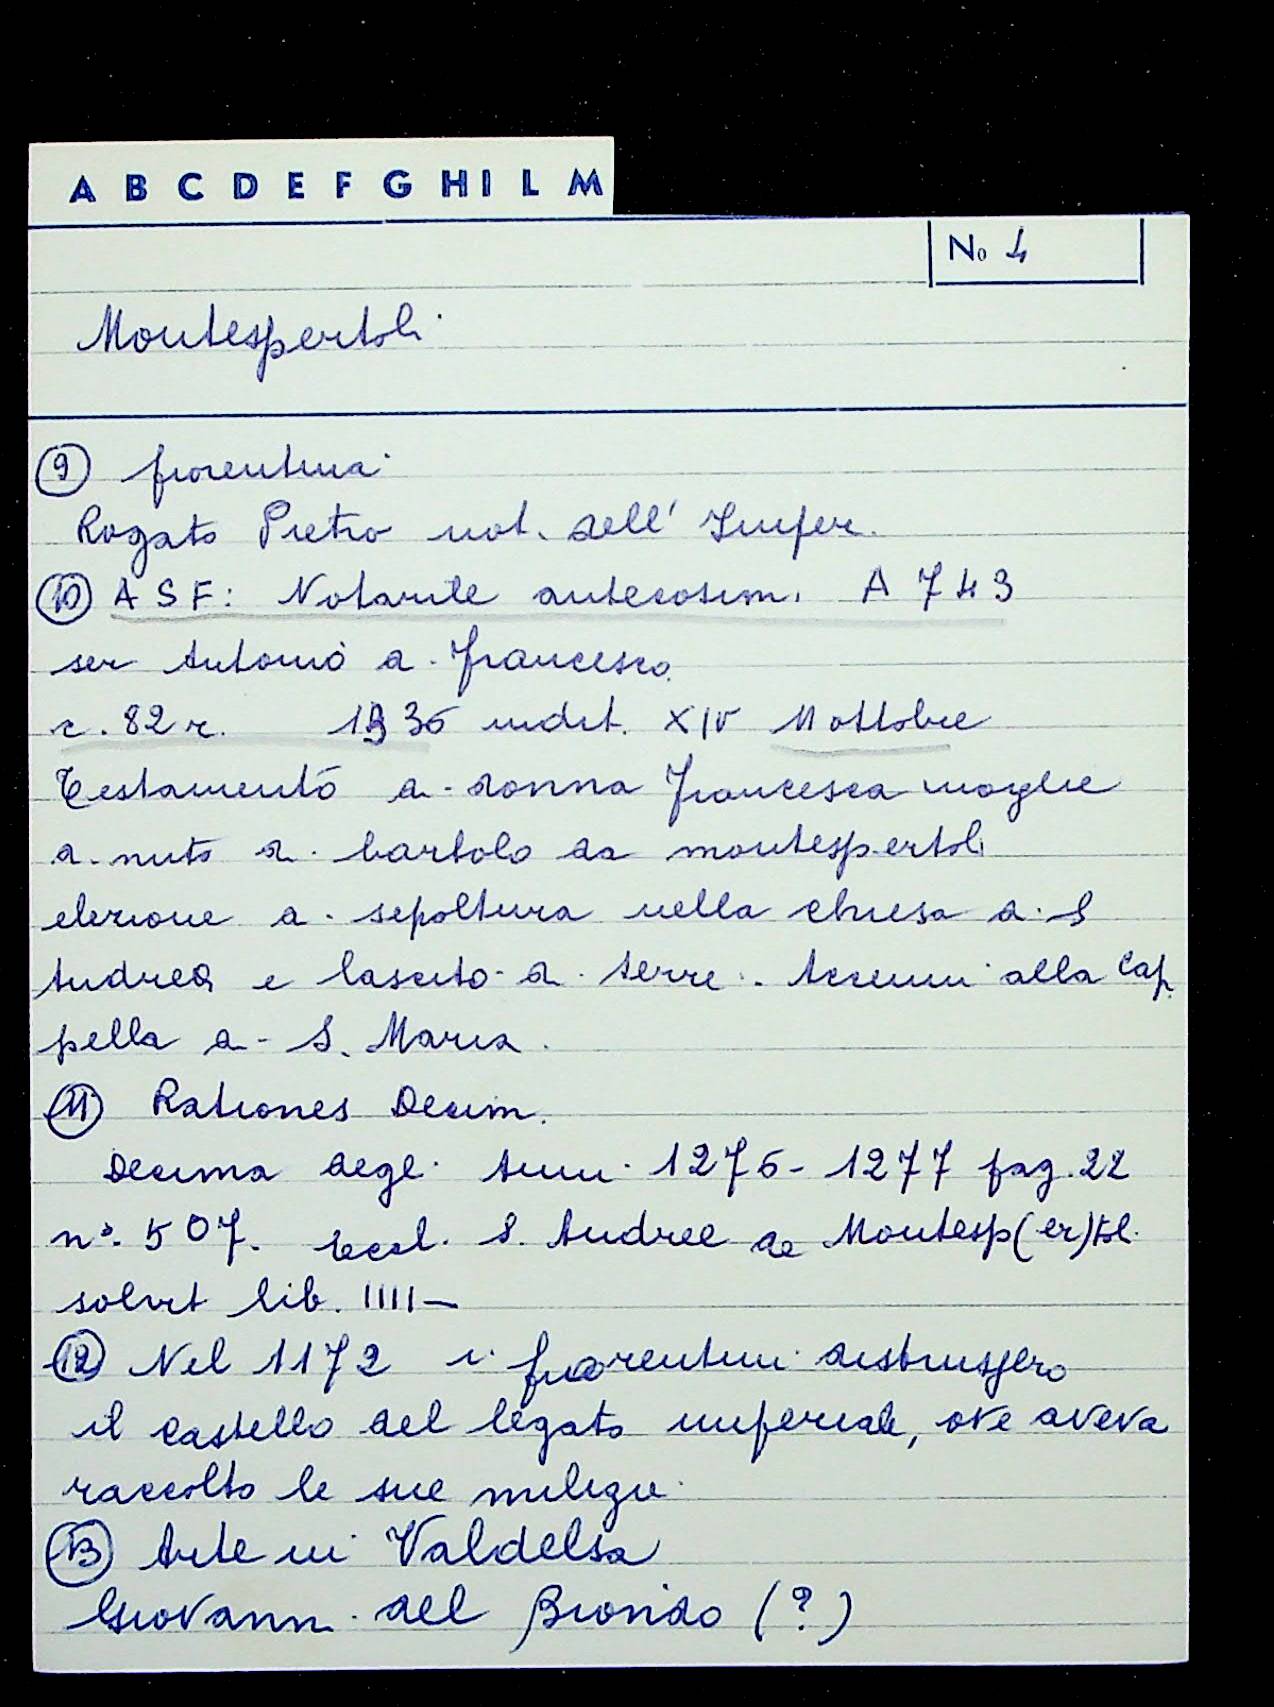 A B C D E F G H I L M
No 4
Montespertoli
9 fiorentina
Rogato Pietro not. dell' Imper.
10 ASF: Notarile antecosim. A 743
ser Antonio di Francesco
c. 82 r. 1336 indit. XIV 11 ottobre
Testamento di donna Francesca moglie
di nuto di bartolo da montespertoli
elezione di sepoltura nella chiesa di S
Andrea e lascito di terre. Accenni alla Cap
pella di S. Maria.
11 Rationes Decim.
Decima degli Anni 1276-1277 pag. 22
n°. 507. Eccl. S. Andree de Montesp(er)toli
solvit lib. IIII-
12 Nel 1172 i fiorentini distrussero
il castello del legato imperiale, ove aveva
raccolto le sue milizie
13 Arte in Valdelsa
Giovanni del Biondo (?)